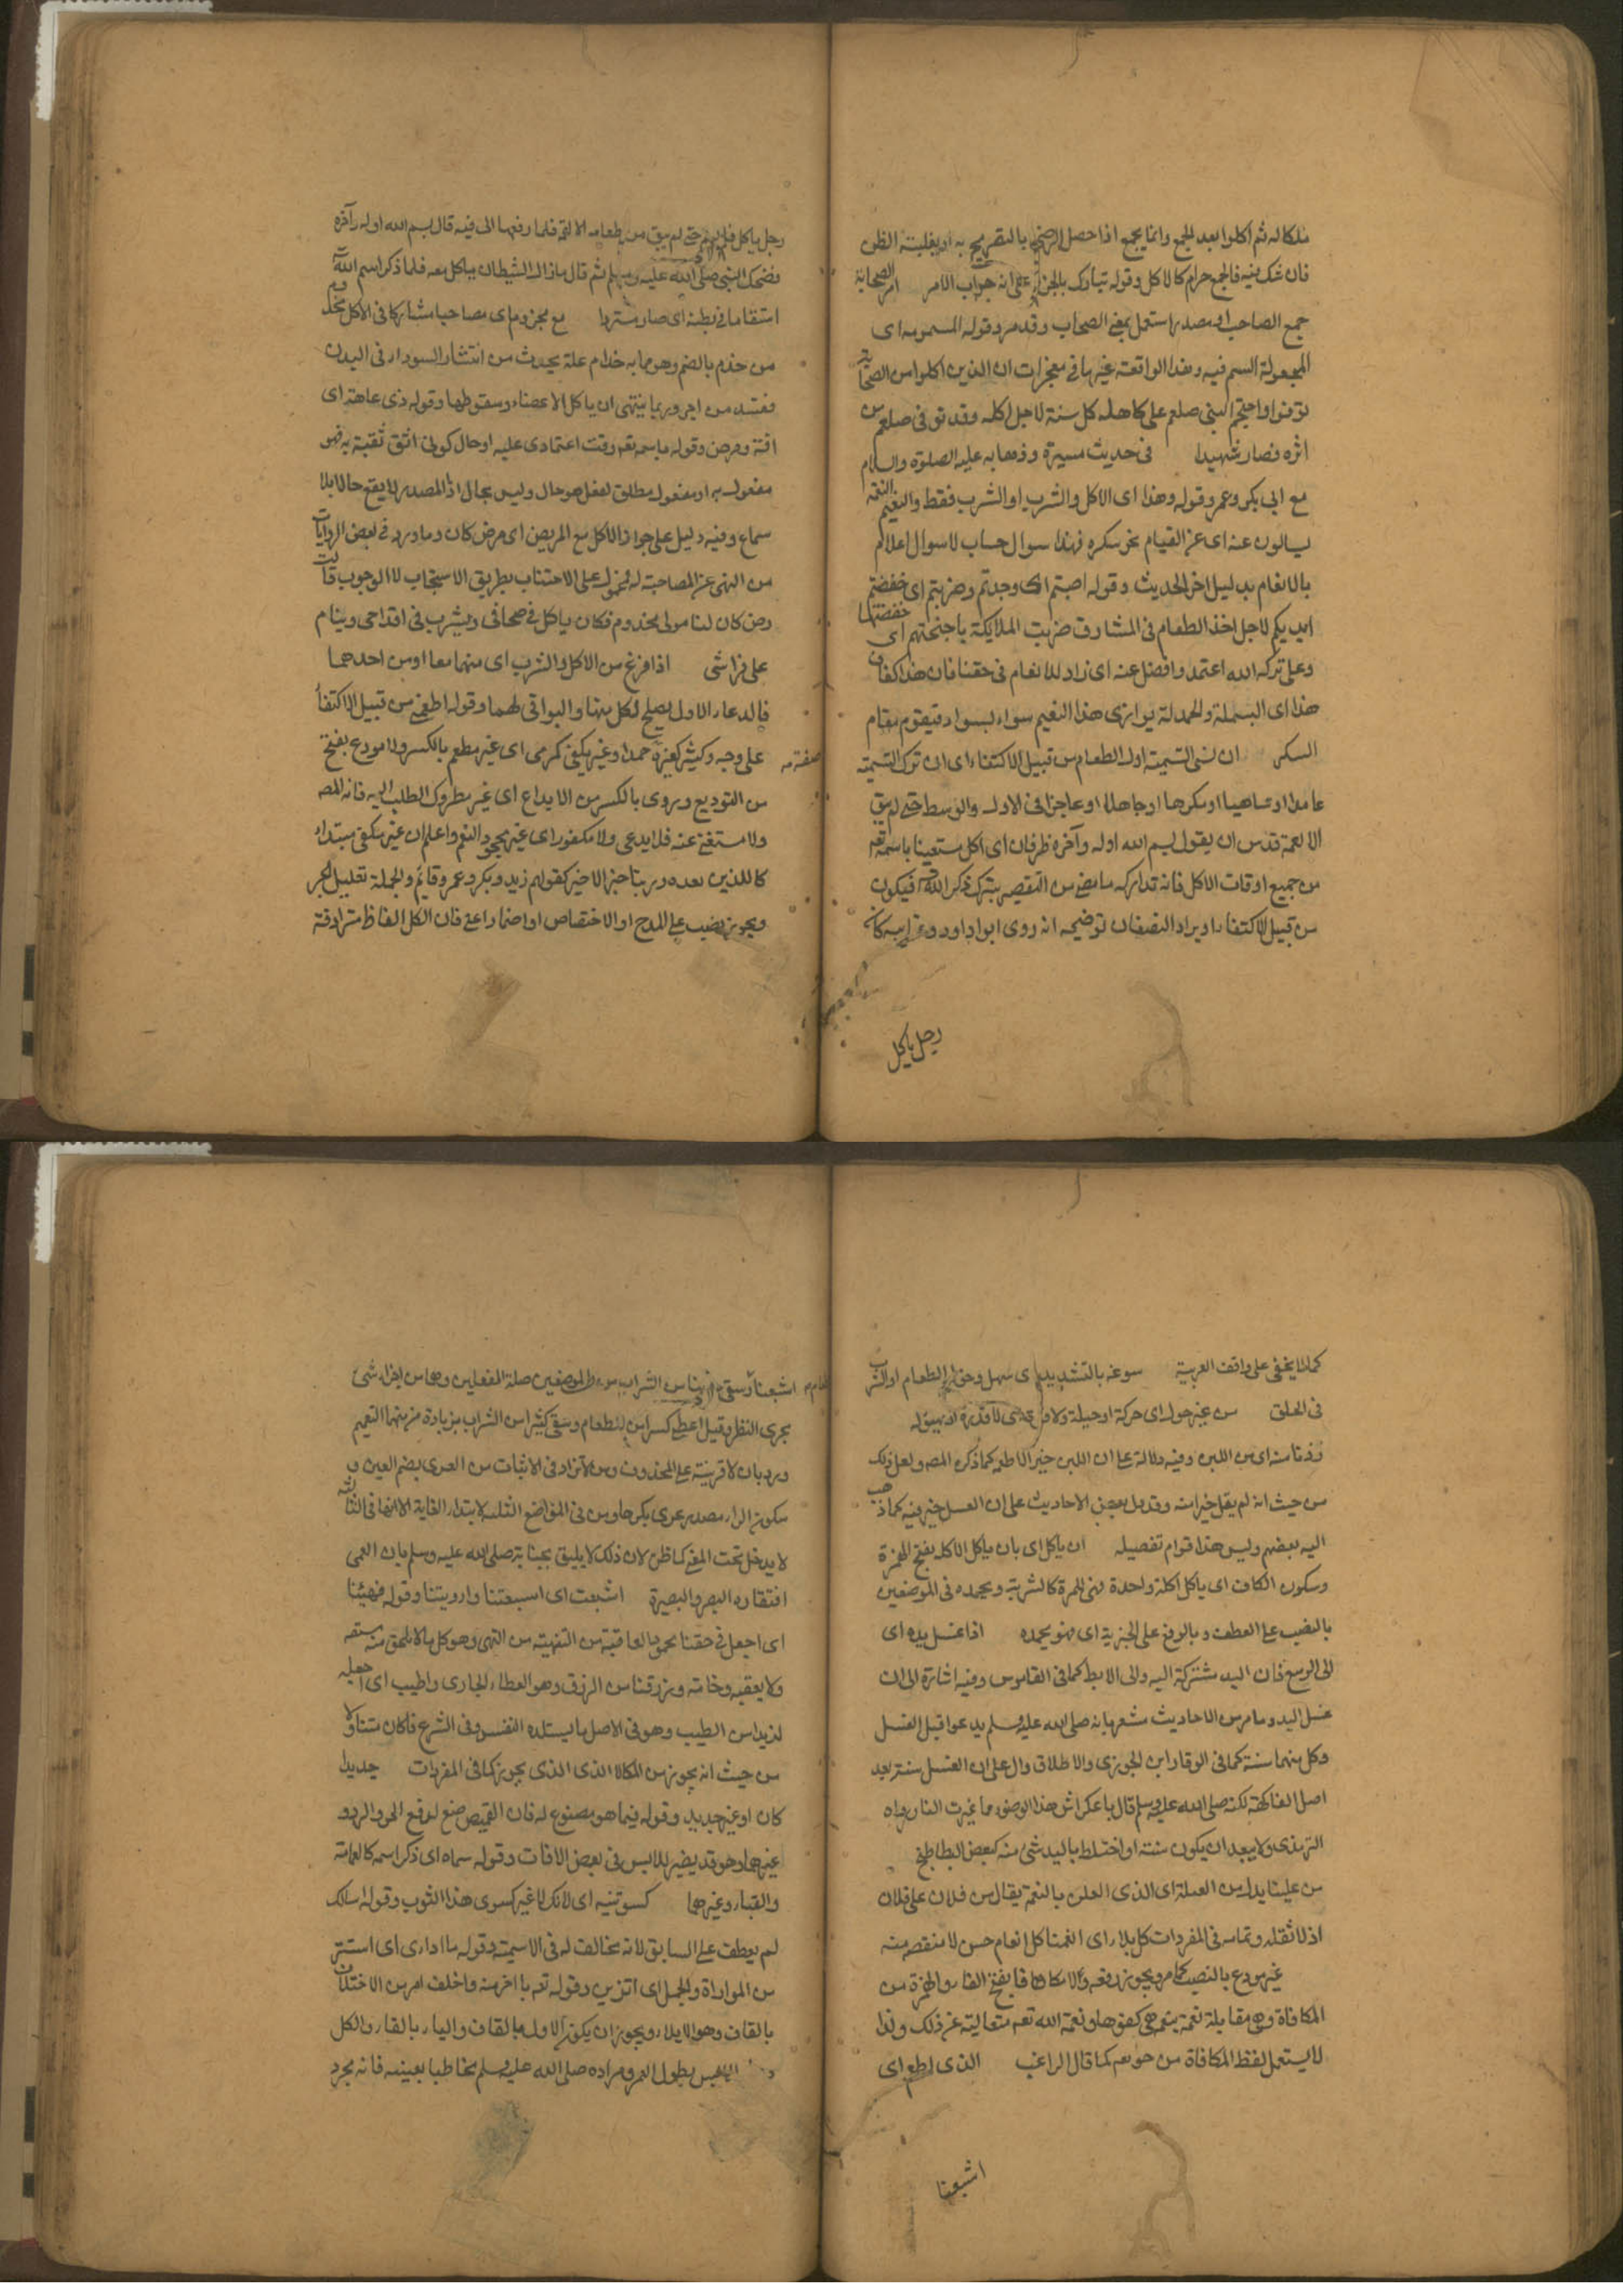 ملكا له ثم اكلوا بعد الجمع وانما يجمع اذا حصل الرضى بالتصريح به او بغلبة الظن
فان شك فيه فالجمع حرام كالاكل وقوله تبارك بالجزم على انه جواب الامر امر الصحابة
جمع الصاحب او مصدر استعمل بمعنى الصحاب وقد مر وقوله المسمومة اى
المجعولة السم فيه وهذا الواقعة غيرها فى معجزات ان الذين اكلوا من الصحابة
توفوا واحتجم النبى صلعم على كاهله كل سنة لاجل اكله وقد توفى صلعم من
اثره فصار شهيدا فى حديث مسيرة وذهابه عليه الصلوة والسلام
مع ابى بكر وعمر وقوله وهذا اى الاكل والشرب او الشرب فقط والنعيم النعمة
يسالون عنه اى عن القيام بحق شكره فهذا سوال حساب لا سوال اعلام
بالانعام بدليل اخر الحديث وقوله اصبتم اى وجدتم وضربتم اى خفضتم
ايديكم لاجل اخذ الطعام فى المشارق ضربت الملايكة باجنحتهم اى خفضتها
وعلى تركه الله اعتمد وافضل عنه اى زاد للانعام فى حقنا فان هذا كفاف
هذا اى البسملة والحمدلة يوازى هذا النعيم سواء بسواء فيقوم مقام
الشكر ان نسى التسمية اول الطعام من قبيل الاكتفاء اى ان ترك التسمية
عامدا او ساهيا او مكرها او جاهلا او عاجزا فى الاول والوسط حتى لم يبق
الا لقمة قدس ان يقول بسم الله اوله وآخره ظرفان اى اكل مستعينا باسمه تعه
من جميع اوقات الاكل فانه تدارك ما مضى من التقصير بترك ذكر الله فيكون
من قبيل الاكتفاء او يراد النصفان توضيحه انه روى ابو داود وغيره انه كان
رجل ياكل
رجل ياكل فلم يسم حتى لم يبق من طعامه الا لقمة فلما رفعها الى فيه قال بسم الله اوله وآخره
فضحك النبى صلى الله عليه وسلم ثم قال ما زال الشيطان ياكل معه فلما ذكر اسم الله
استقاء ما فى بطنه اى صار مستردا مع مجزوم اى مصاحبا مشاركا فى الاكل مجذوم
من جذم بالضم وهو مما به جذام علة يحدث من انتشار السوداء فى البدن
فتفسد مزاجه وربما ينتهى ان ياكل الاعضاء وسقوطها وقوله ذى عاهة اى
افة ومرض وقوله باسمه تعه وقت اعتمادى عليه او حال كونى اثق ثقة به فهو
مفعول به او مفعول مطلق لفعل هو حال وليس بحال اذ المصدر لا يقع حالا بلا
سماع وفيه دليل على جواز الاكل مع المريض اى مرض كان وما ورد فى بعض الروايات
من النهى عن المصاحبة له محمول على الاجتناب بطريق الاستحباب لا الوجوب قالت
كان لنا مولى مجذوم فكان ياكل فى صحافى ويشرب فى اقداحى وينام
على فراشى اذا فرغ من الاكل والشرب اى منهما معا او من احدهما
فالدعاء الاول يصلح لكل منهما والبواقى لهما وقوله اطعمنى من قبيل الاكتفاء
صفة مه
على وجه وكثيرة كغيره حمدا وغير مكفى كمرمى اى غير مطعم بالكسر ولا مودع بفتح
من التوديع ويروى بالكسر من الايداع اى غير مطروك الطلب اليه فانه المصه
ولا مستغنى عنه فلا يدعى ولا مكفور اى غير مجحود النعم واعلم ان غير مكفى مبتداء
كاللذين بعده وربنا خبر الاخير كقولهم زيد وبكر وعمر وقائم والجملة تعليل لجر
ويجوز نصب على المدح او الاختصاص او اضمار اعنى فان الكل الفاظ مترادفة
كما لا يخفى على واقف العربية سوغه بالتشديد اى سهل دخول الطعام او الشراب
فى الحلق من غير حول اى حركة او حيلة ولا قوة اى لا قدرة
زدنا منه اى من اللبن وفيه دلالة على ان اللبن خير الاطعمة كما ذكره المصه ولعل ذلك
من حيث انه لم يقل خيرا منه وقد دل بعض الاحاديث على ان العسل خير فيه كما ذهب
اليه بعضهم وليس هذا قوام تفصيله ان ياكل اى بان ياكل الاكلة بفتح الهمزة
وسكون الكاف اى ياكل اكلة واحدة فهى للمرة كالشربة ويحمده فى الموضعين
بالنصب على العطف وبالرفع على الخبرية اى فهو يحمده اذا غسل يده اى
الى الرسغ فان اليد مشتركة اليه والى الابط كما فى القاموس وفيه اشارة الى ان
غسل اليد وما مر من الاحاديث مشعر بانه صلى الله عليه وسلم يدعو قبل الغسل
وكل منهما سنة كما فى الوقار ابن الجوزى والاطلاق دال على ان الغسل سنة بعد
اصل الفاكهة لكنه صلى الله عليه وسلم قال يا عكراش هذا الوضوء مما غيرت النار رواه
الترمذى ولا يبعد ان يكون سنة او اختلط باليد شئ منه كبعض البطاطيخ
من علينا بدل من الصلة اى الذى المن بالنعمة يقال من فلان على فلان
اذا اثقله وتمامه فى المفردات كل بلاء اى انعمنا كل انعام حسن لا منقصة منه
غير مودع بالنصب كما مر ويجوز رفعه ولا مكافا بفتح الفاء والهمزة من
المكافاة وهى مقابلة نعمة بنعمة هى كفوها ونعمة الله تعه متعالية عن ذلك ولذا
لا يستعمل لفظ المكافاة من حقه تعه كما قال الراغب الذى اطعم اى
اشبعنا
اشبعنا وسقى من الشراب من فى الموضعين صلة الفعلين وهما من اجزاء شئ
بجرى النظر وقيل اعطى كسرا من الطعام وسقى كثيرا من الشراب بزيادة من منهما التعميم
ورد بان لا قرينة على المحذوف ومن لا تزاد فى الاثبات من العرى بضم العين و
سكون الراء مصدر عرى بكر حاو من فى المواضع الثلثة لابتداء الغاية الا انها فى الثالثة
لا يدخل تحت المغيا كما ظن لان ذلك لا يليق بجنابه صلى الله عليه وسلم بان العمى
افتقاده البصر والبصيرة اشبعت اى اسبعتنا وارويتنا وقوله فهنينا
اى اجعل فى حقنا محمود العاقبة من التهنية من النهى وهو كل ما لا يلحق منه مشقة
ولا يعقبه وخامة ورزقنا من الرزق وهو العطاء الجارى واطيب اى جعله
لذيذا من الطيب وهو فى الاصل ما يستلذه النفس وفى الشرع ما كان متناولا
من حيث انه يجوز من المكان الذى الذى يجوز كما فى المفردات جديدا
كان او غير جديد وقوله فيما هو مصنوع له فان القميص صنع لدفع الحر والبرد
غيرها وهو قد يضر للابس فى بعض الافات وقوله سماه اى ذكر اسمه كالعمامة
والقباء وغيرهما كسوتنيه اى لانك لا غيرك كسوى هذا الثوب وقوله اسالك
لم يعطف على السابق لانه مخالف له فى الاسمية وقوله ما اوارى اى استتر
من المواراة والجمل اى اتزين وقوله تعه يا اخر منه واخلف امر من الاختلاف
بالقاف وهو الابلاء ويجوز ان يكون الاول بالقاف والياء بالفاء والكل
العيس بطول العمر ومراده صلى الله عليه وسلم مخاطبا بعينه فانه مجرد